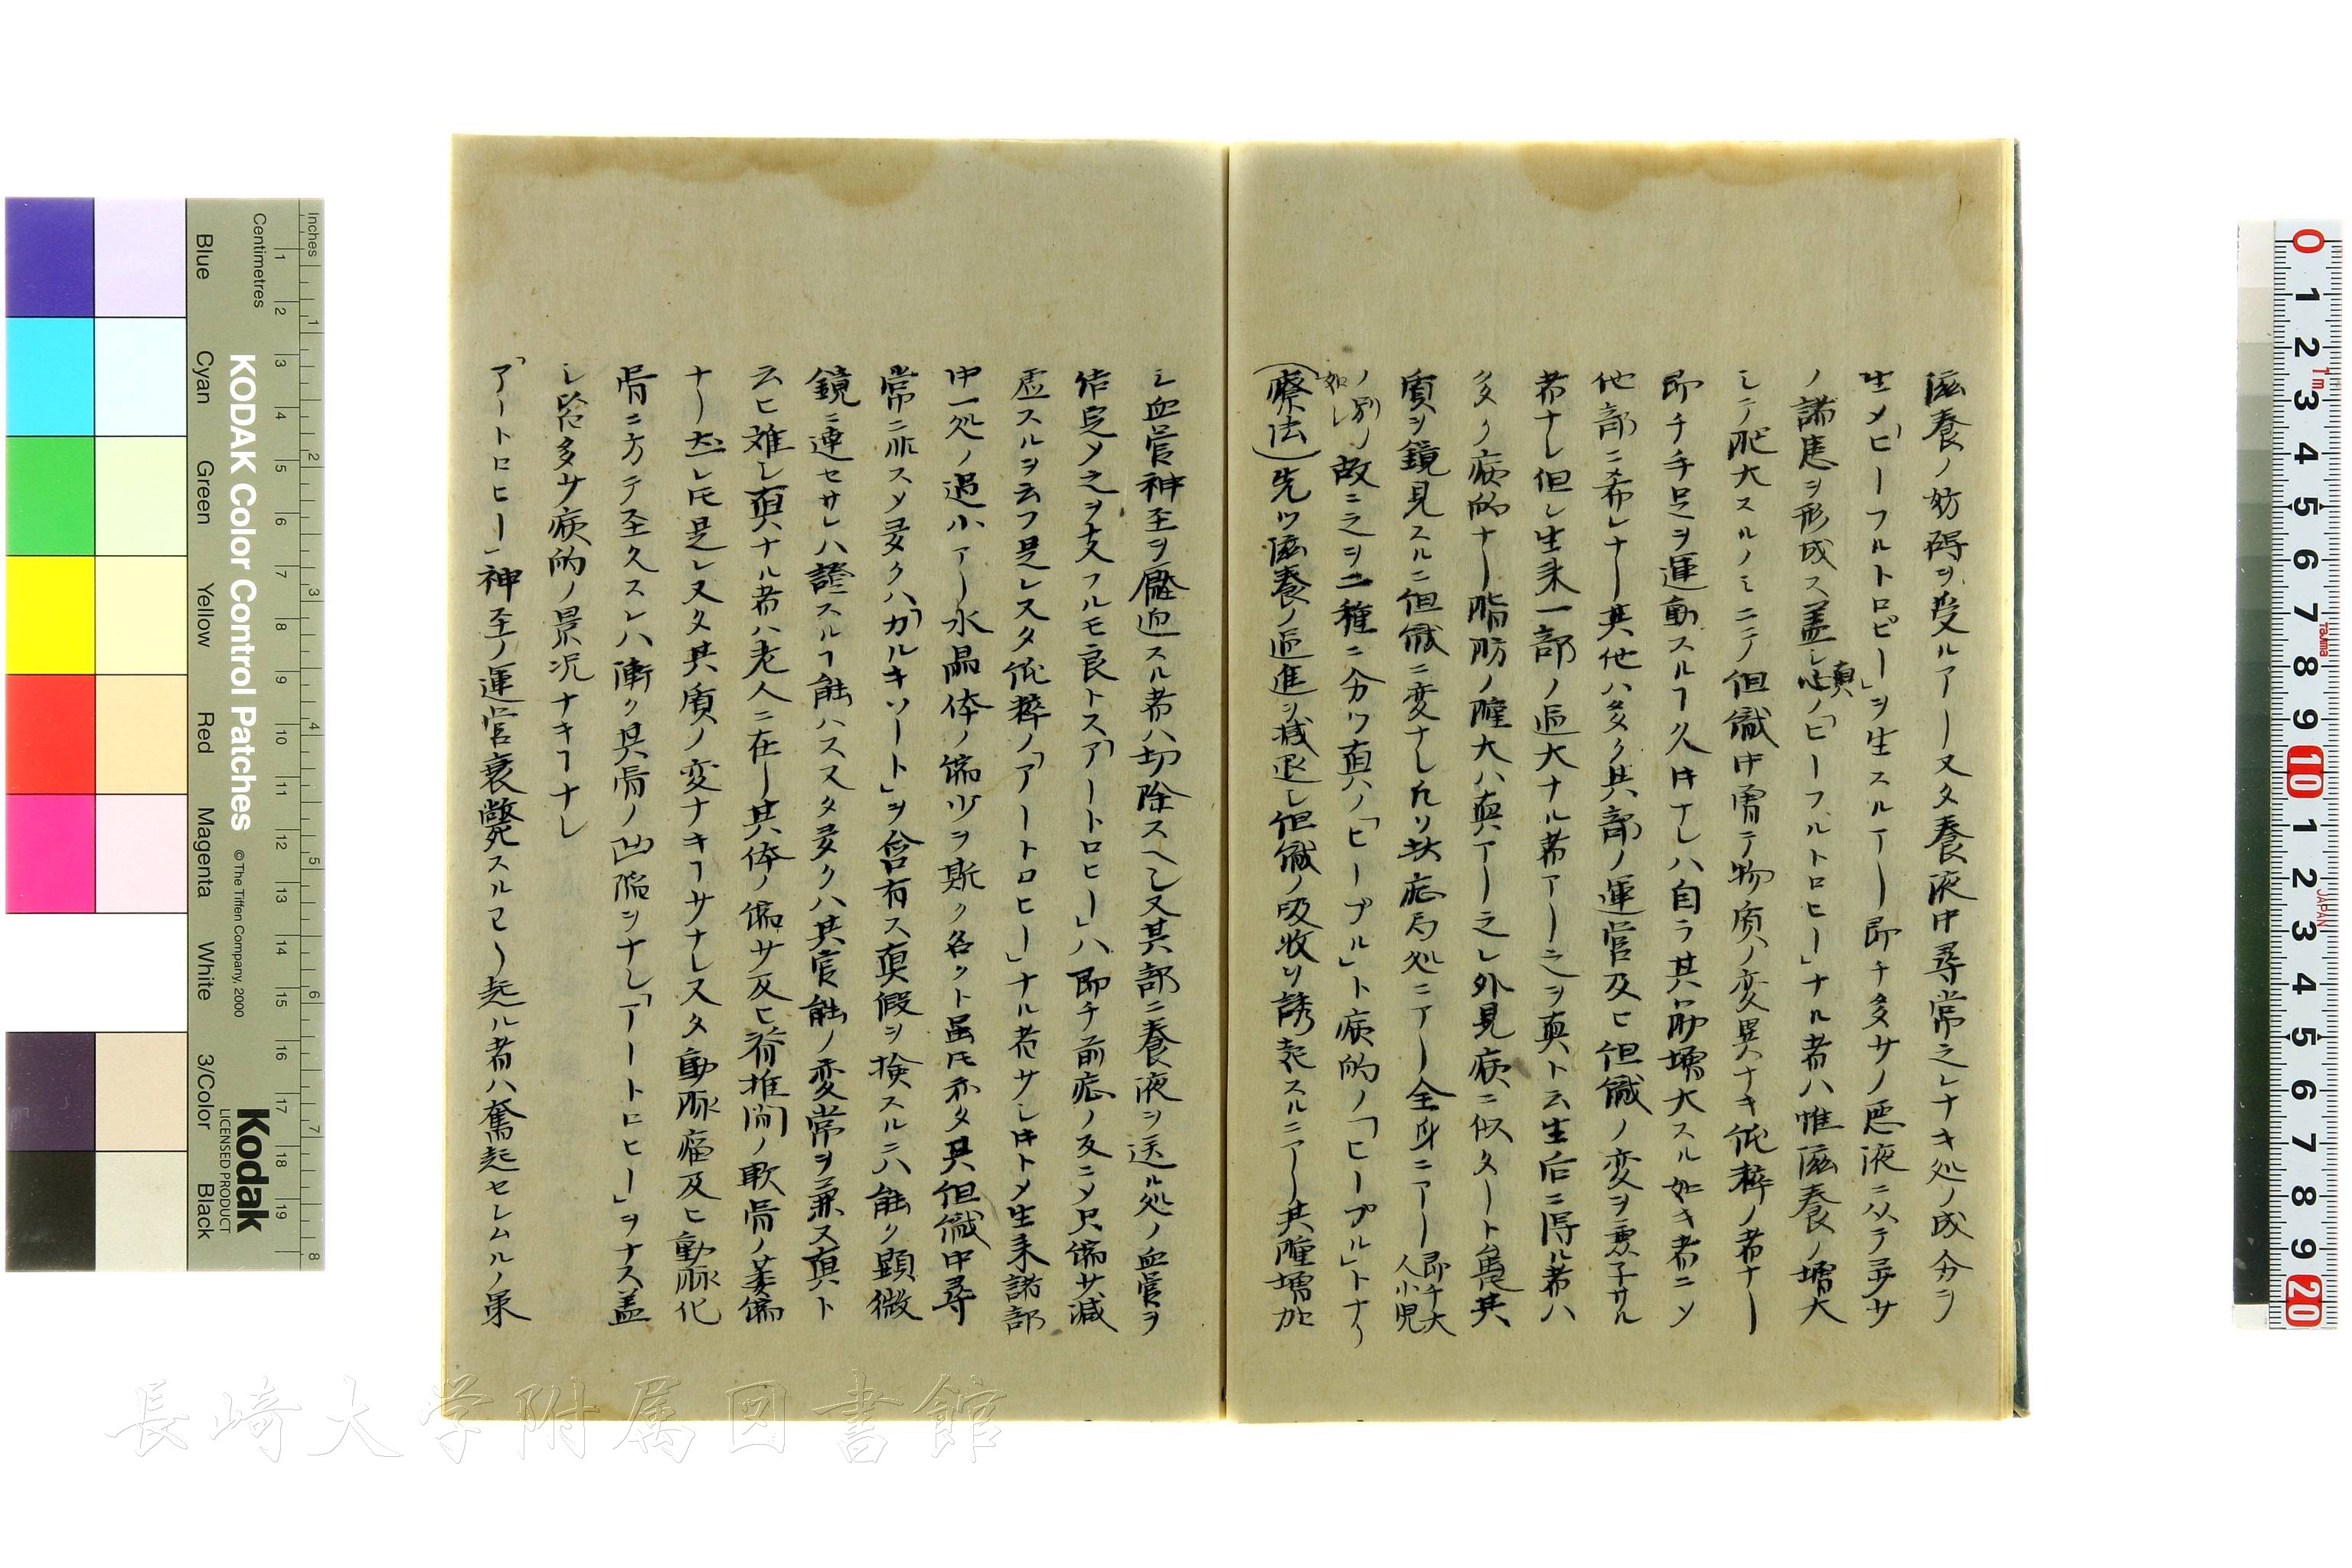 滋養ノ妨碍ヲ受ルアー又タ養液中尋常之レナキ処ノ成分ヲ
生メ「ヒーフルトロピー」ヲ生スルアー即チ多サノ悪液ニ以テ
ノ諸患ヲ形成ス蓋シ真ノ「ヒーフルトロヒー」ナル者ハ惟滋養ノ増大
シテ肥大スルノミニテ但織中 物質ノ変異ナキ純粋ノ者ナー
即チ手足ヲ運動スルヿ久キナレハ自ラ其筋増大スル如キ者ニメ
他部ニ希レナー其他ハ多ク其部ノ運営及ヒ但織ノ変ヲ
希ナレ但シ生来一部ノ過大ナル者アー之ヲ真ト云生后ニ得ル者ハ
多ク病的ナー脂肪ノ腫大ハ真アー之レ外見病ニ似タート其
質ヲ鏡見スルニ但織ニ変ナレ 此症局処ニアー全身ニアー即チ大人小児
ノ別ノ如シ故ニ之ヲ二種ニ分ツ真ハノ「ヒープル」ト病的ノ「ヒープル」トナリ
(療法)先ツ滋養ノ過進ヲ減退シ但織ノ吸收ヲ誘起スルニアー其腫増加
シ血管神至ヲ壓迫スル者ハ切除スヘシ又其部ニ養液ヲ送ル処ノ血管ヲ
結定メ之ヲ支フルモ良トス「アートロヒー」ハ即チ前症ノ反ニメ只偏サ減
虚スルヲ云フ是レ又タ純粋ノ「アートロヒー」ナル者サシキトメ生来諸部
中一処ノ過小アー水晶体ノ偏少ヲ斯ク名クト虽氏亦タ其但織中尋
常ニ非スメ多クハ「カルキソート」ヲ含有ス真假ヲ検スルニハ能ク顕微
鏡ニ連セサレハ證スルヿ能ハス又タ多クハ其官能ノ変常ヲ兼ス真ト
云ヒ難レ真ナル者ハ老人ニ在ー其体ノ偏サ及ヒ脊推間ノ軟骨ノ萎偏
ナー 氏是レ又タ其質ノ変ナキヿサナレ又タ動脉瘤及ヒ動脉化
骨ニ方テ至久スレハ漸ク其骨ノ凹陥ヲナレ「アートロヒー」ヲナス蓋
シ 多サ病的ノ景况ナキヿナレ
「アートロヒー」神至ノ運営衰斃スルヨー起ル者ハ奮起セレムルノ策
KODAK Color Control Patches
©The Tiffen Company, 2000
Kodak
LICENSED PRODUCT
Inches
Centimetres
Blue
Cyan
Green
Yellow
Red
Magenta
White
3/Color
Black
1 2 3 4 5 6 7 8 9 10 11 12 13 14 15 16 17 18 19
1 2 3 4 5 6 7 8
0 1 2 3 4 5 6 7 8 9 10 1 2 3 4 5 6 7 8 9 20
1m
Tajima
JAPAN
長崎大学附属図書館